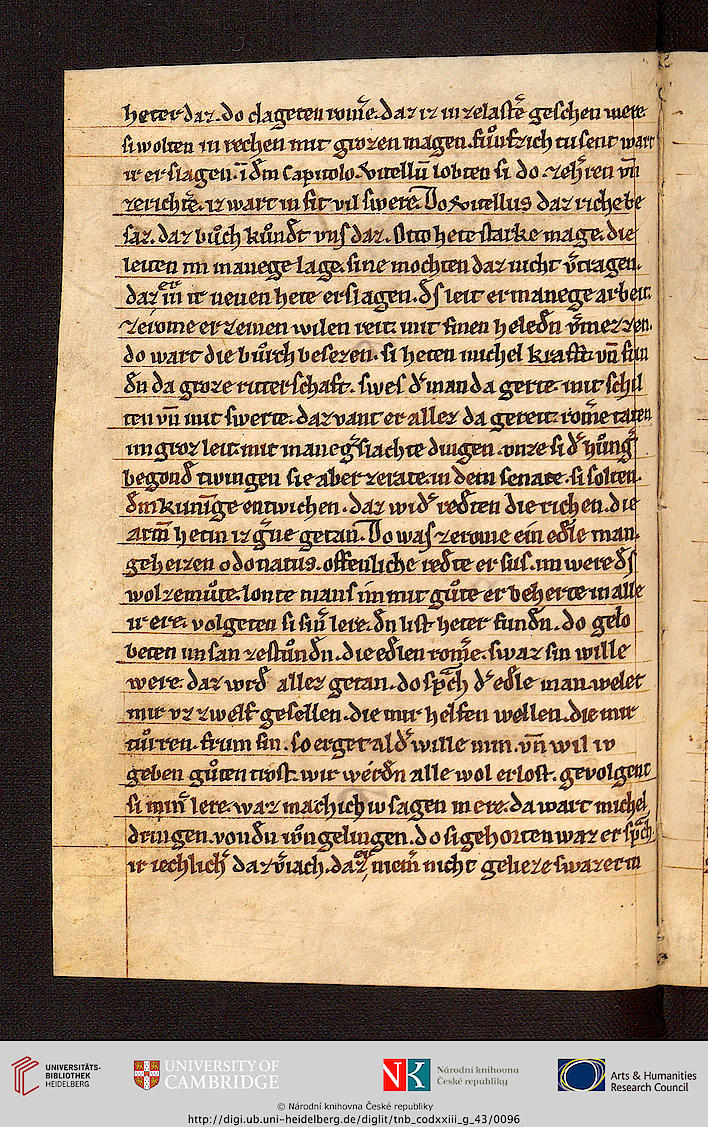 heter daz. do clageten rom̄e. daz iz in zelastē geschen were
si wolten in rechen mit grozen magen. fůnfzich tusent wart
ir erslagen. ī dm̄ Capitolo. Vitellū lobten si do zehr̄ren vn̄
zerichtē. iz wart in sit vil swere. Do Vitellus daz riche be
saz. daz bůch kůndt vns daz. Otto hete starke mage. die
leiten im manege lage. sine mochten daz nicht v̄tragen.
daz er in ir neuen hete erslagen. ds leit er manege arbeit.
ze rome er zeinen wilen reit. mit sinen heledn v̄mezzen.
do wart die bůrch besezen. si heten michel krafft vn̄ fun
dn da groze ritterschaft. swes d̄ man da gerte. mit schil
ten vn̄ mit swerte. daz vant er allez da gereit. rom̄e taten
im groz leit. mit maneḡslachte dingen. vnze si d̄ hůnḡ
begond twingen sie aber ze rate. in dem senate. si solten.
dm̄ kunīge entwichen. daz wid̄ redten die richen. die
arm̄ hetin iz ḡne getan. Do was zerome ein edle man.
geheizen odonatus. offenliche redte er sus. im were ds
wol zemůte. lonte mans im mit gůte er beherte in alle
ir ere. volgeten si sin̄ lere. dn list heter fundn. do gelo
beten im san zestůndn. die edlen rom̄e. swaz sin wille
were. daz wrd allez getan. do sp̄ch d̄ edle man. welet
mir vz zwelf gesellen. die mir helfen wellen. die mir
tůren. frum sin. so erget al d̄ wille min. vn̄ wil iv
geben gůten trost. wir werdn alle wol erlost. gevolgent
si min̄ lere. waz mach ich iv sagen mere. da wart michel
dringen. von dn iůngelingen. do si gehorten waz er sp̄ch
ir iechlich̄ daz v̄iach. daz er niem̄ nicht gelieze swaz et in
UNIVERSITÄTS-
BIBLIOTHEK
HEIDELBERG
UNIVERSITY OF
CAMBRIDGE
NK
Národní knihovna
České republiky
Arts & Humanities
Research Council
© Národní knihovna České republiky
http://digi.ub.uni-heidelberg.de/diglit/tnb_codxxiii_g_43/0096